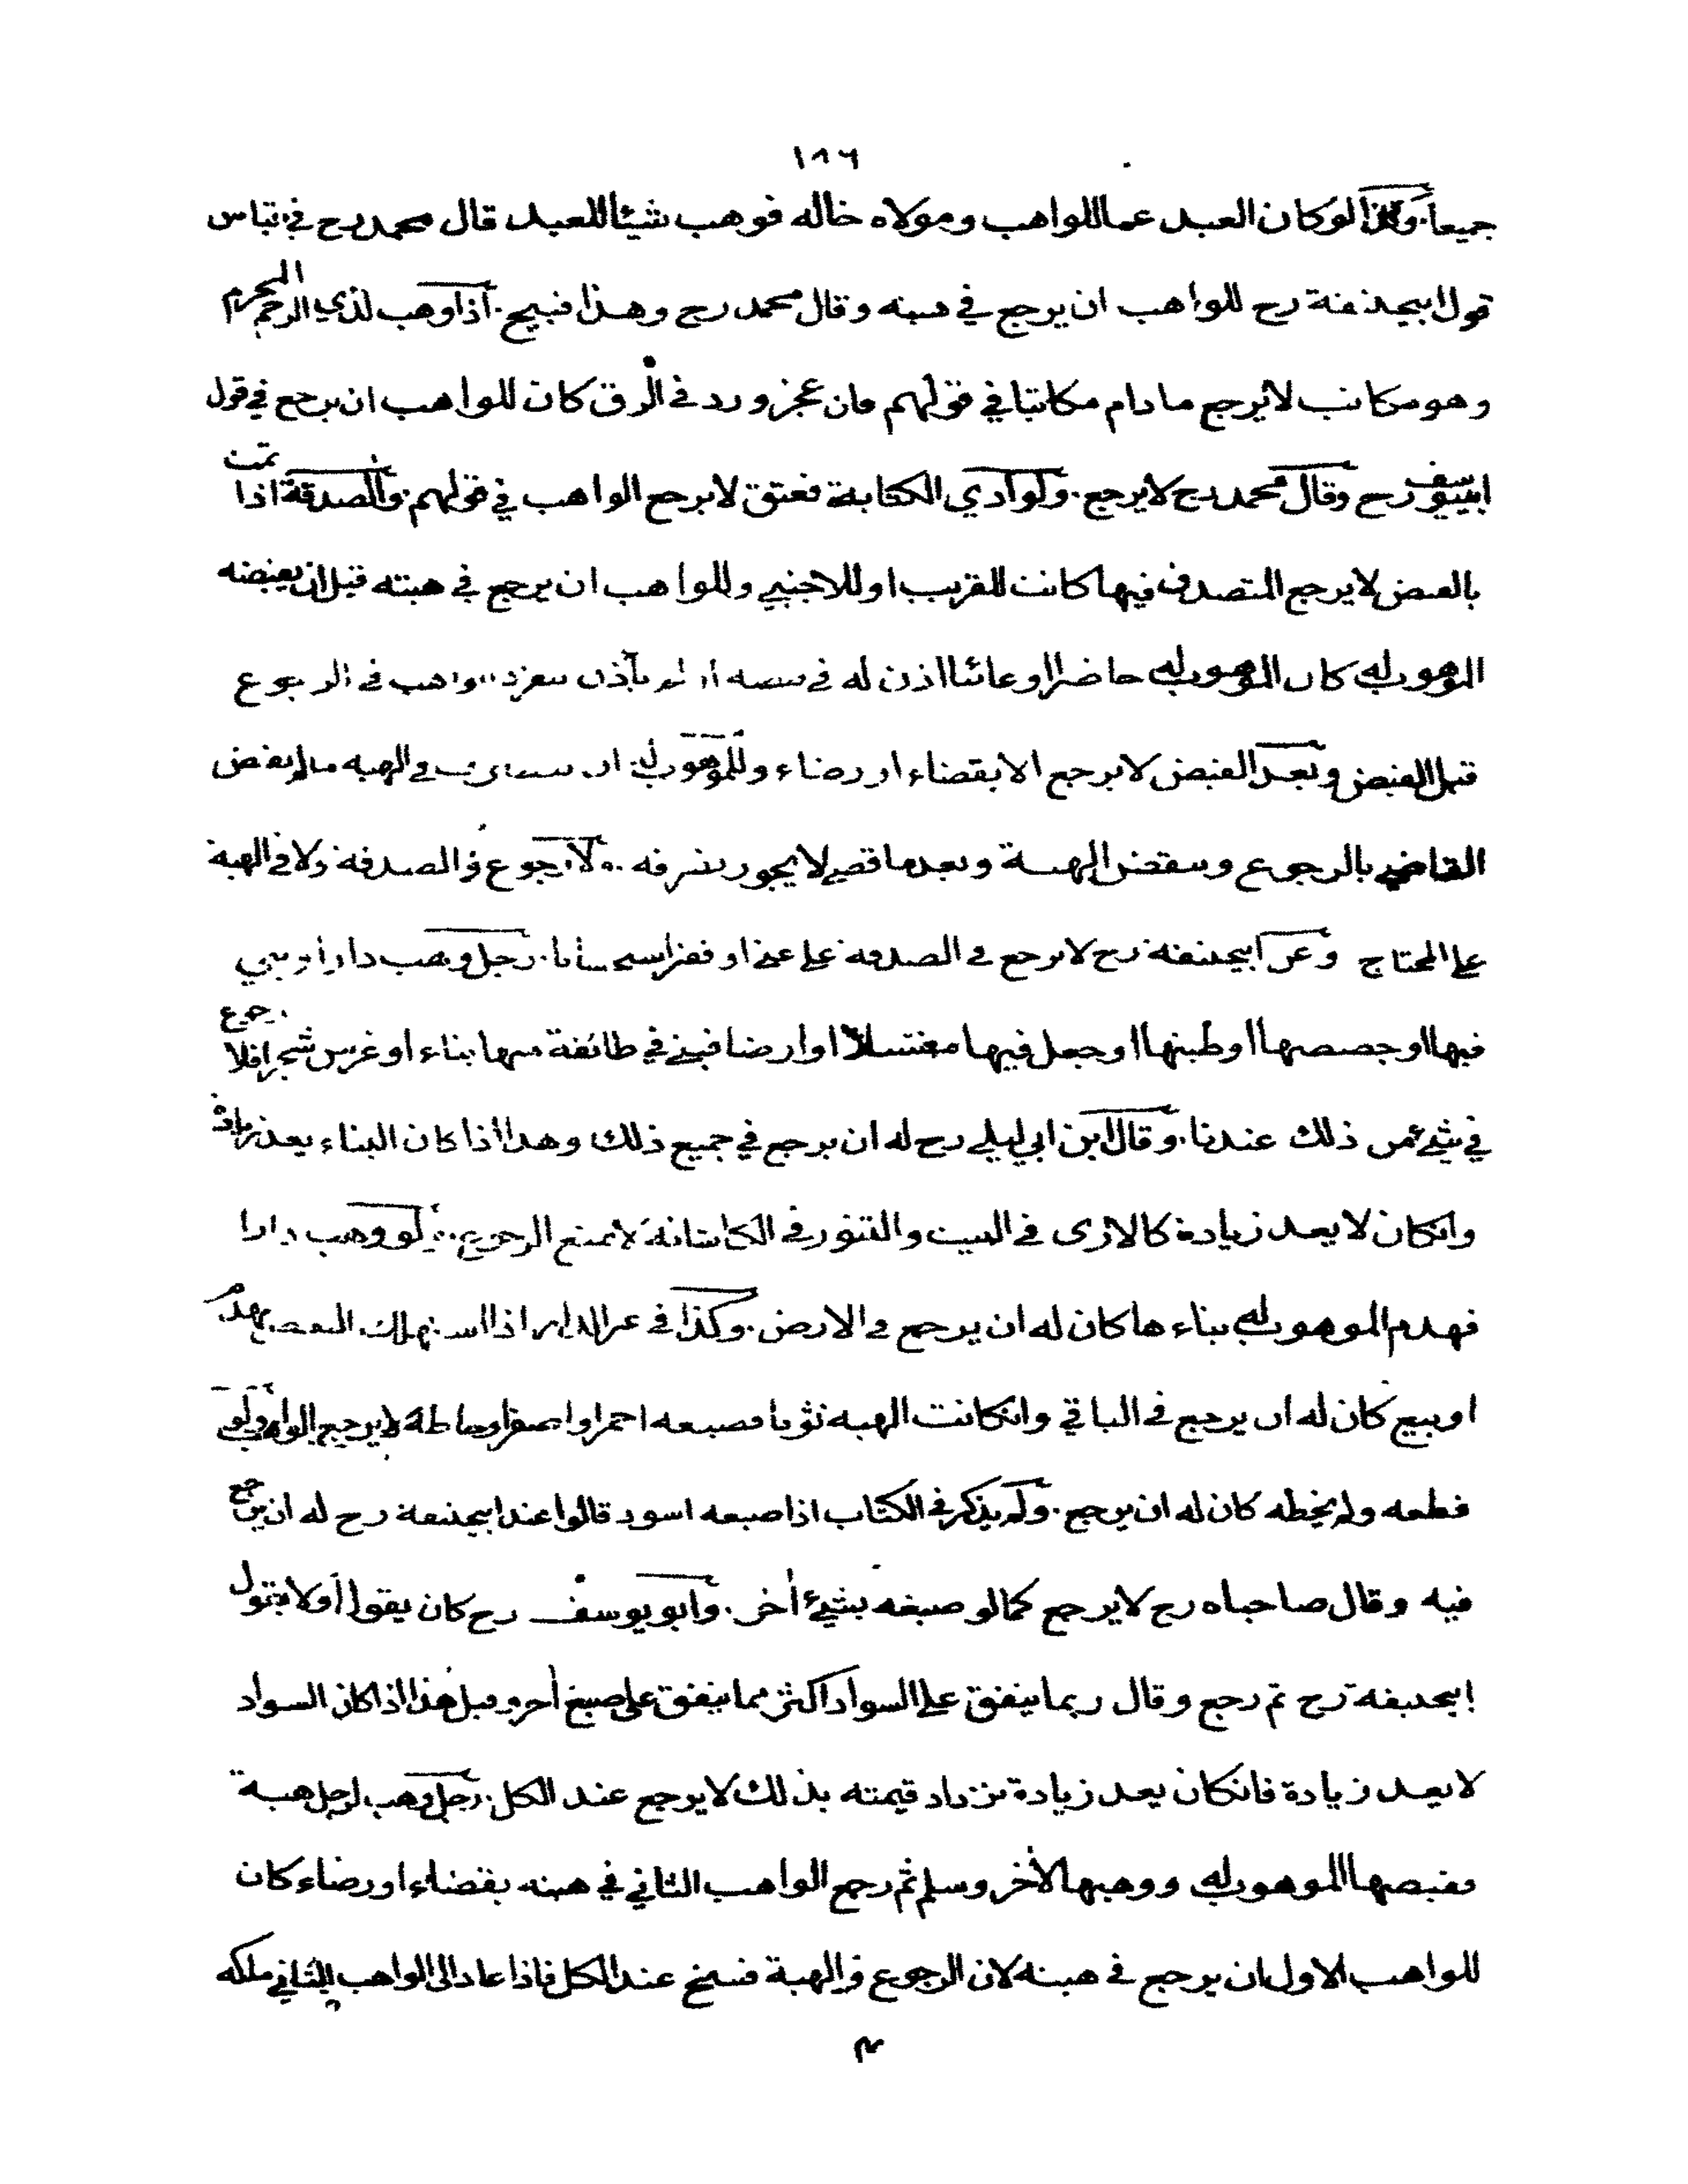 ١٨٦
جميعا. وكذا لو كان العبد عما للواهب ومولاه خاله فوهب شيئا للعبد قال محمد رح في قياس
قول ابيحنيفة رح للواهب ان يرجع في هبته وقال محمد رح وهذا قبيح. اذا وهب لذي الرحم المحرم
وهو مكاتب لا يرجع ما دام مكاتبا في قولهم فان عجز ورد في الرق كان للواهب ان يرجع في قول
ابييوسف رح وقال محمد رح لا يرجع. ولو ادي الكتابة فعتق لا يرجع الواهب في قولهم. والصدقة اذا تمت
بالقبض لا يرجع المتصدق فيها كانت للقريب او للاجنبي وللواهب ان يرجع في هبته قبل ان يقبضه
الموهوب له كان الموهوب له حاضرا او غائبا اذن له في قبضه او لم يأذن الواهب في الرجوع
قبل القبض وبعد القبض لا يرجع الا بقضاء او رضاء وللموهوب له ان في الهبة ما لم يقض
القاضي بالرجوع وينقض الهبة وبعد ما قضى لا يجوز تصرفه. ولا رجوع في الصدقة ولا في الهبة
على المحتاج وعن ابيحنيفة رح لا يرجع في الصدقة على غني او فقير استحسانا. رجل وهب دارا فبني
فيها او جصصها او طينها او جعل فيها مغتسلا او ارضا فبني في طائفة منها بناء او غرس شجرا فلا رجوع
في شيء من ذلك عندنا. وقال ابن ابي ليلي رح له ان يرجع في جميع ذلك وهذا اذا كان البناء يعد زيادة
وانكان لا يعد زيادة كالاري في البيت والتنور في الكاشانة لا يمنع الرجوع. ولو وهب دارا
فهدم الموهوب له بناءها كان له ان يرجع في الارض. وكذا في غير الدار اذا استهلك البعض بهدم
او ببيع كان له ان يرجع في الباقي وانكانت الهبة ثوبا فصبغه احمر او اصفر او خاطه لا يرجع الواهب ولو
قطعه ولم يخطه كان له ان يرجع. ولم يذكر في الكتاب اذا صبغه اسود قالوا عند ابيحنيفة رح له ان يرجع
فيه وقال صاحباه رح لا يرجع كما لو صبغه بشيء أخر. وابو يوسف رح كان يقول اولا بقول
ابيحنيفة رح ثم رجع وقال ربما ينفق على السواد اكثر مما ينفق على صبغ أخر وقيل هذا اذا كان السواد
لا يعد زيادة فانكان يعد زيادة تزداد قيمته بذلك لا يرجع عند الكل. رجل وهب لرجل هبة
فقبضها الموهوب له ووهبها لأخر وسلم ثم رجع الواهب الثاني في هبته بقضاء او رضاء كان
للواهب الاول ان يرجع في هبته لان الرجوع في الهبة فسخ عند الكل فاذا عاد الى الواهب الثاني ملكه